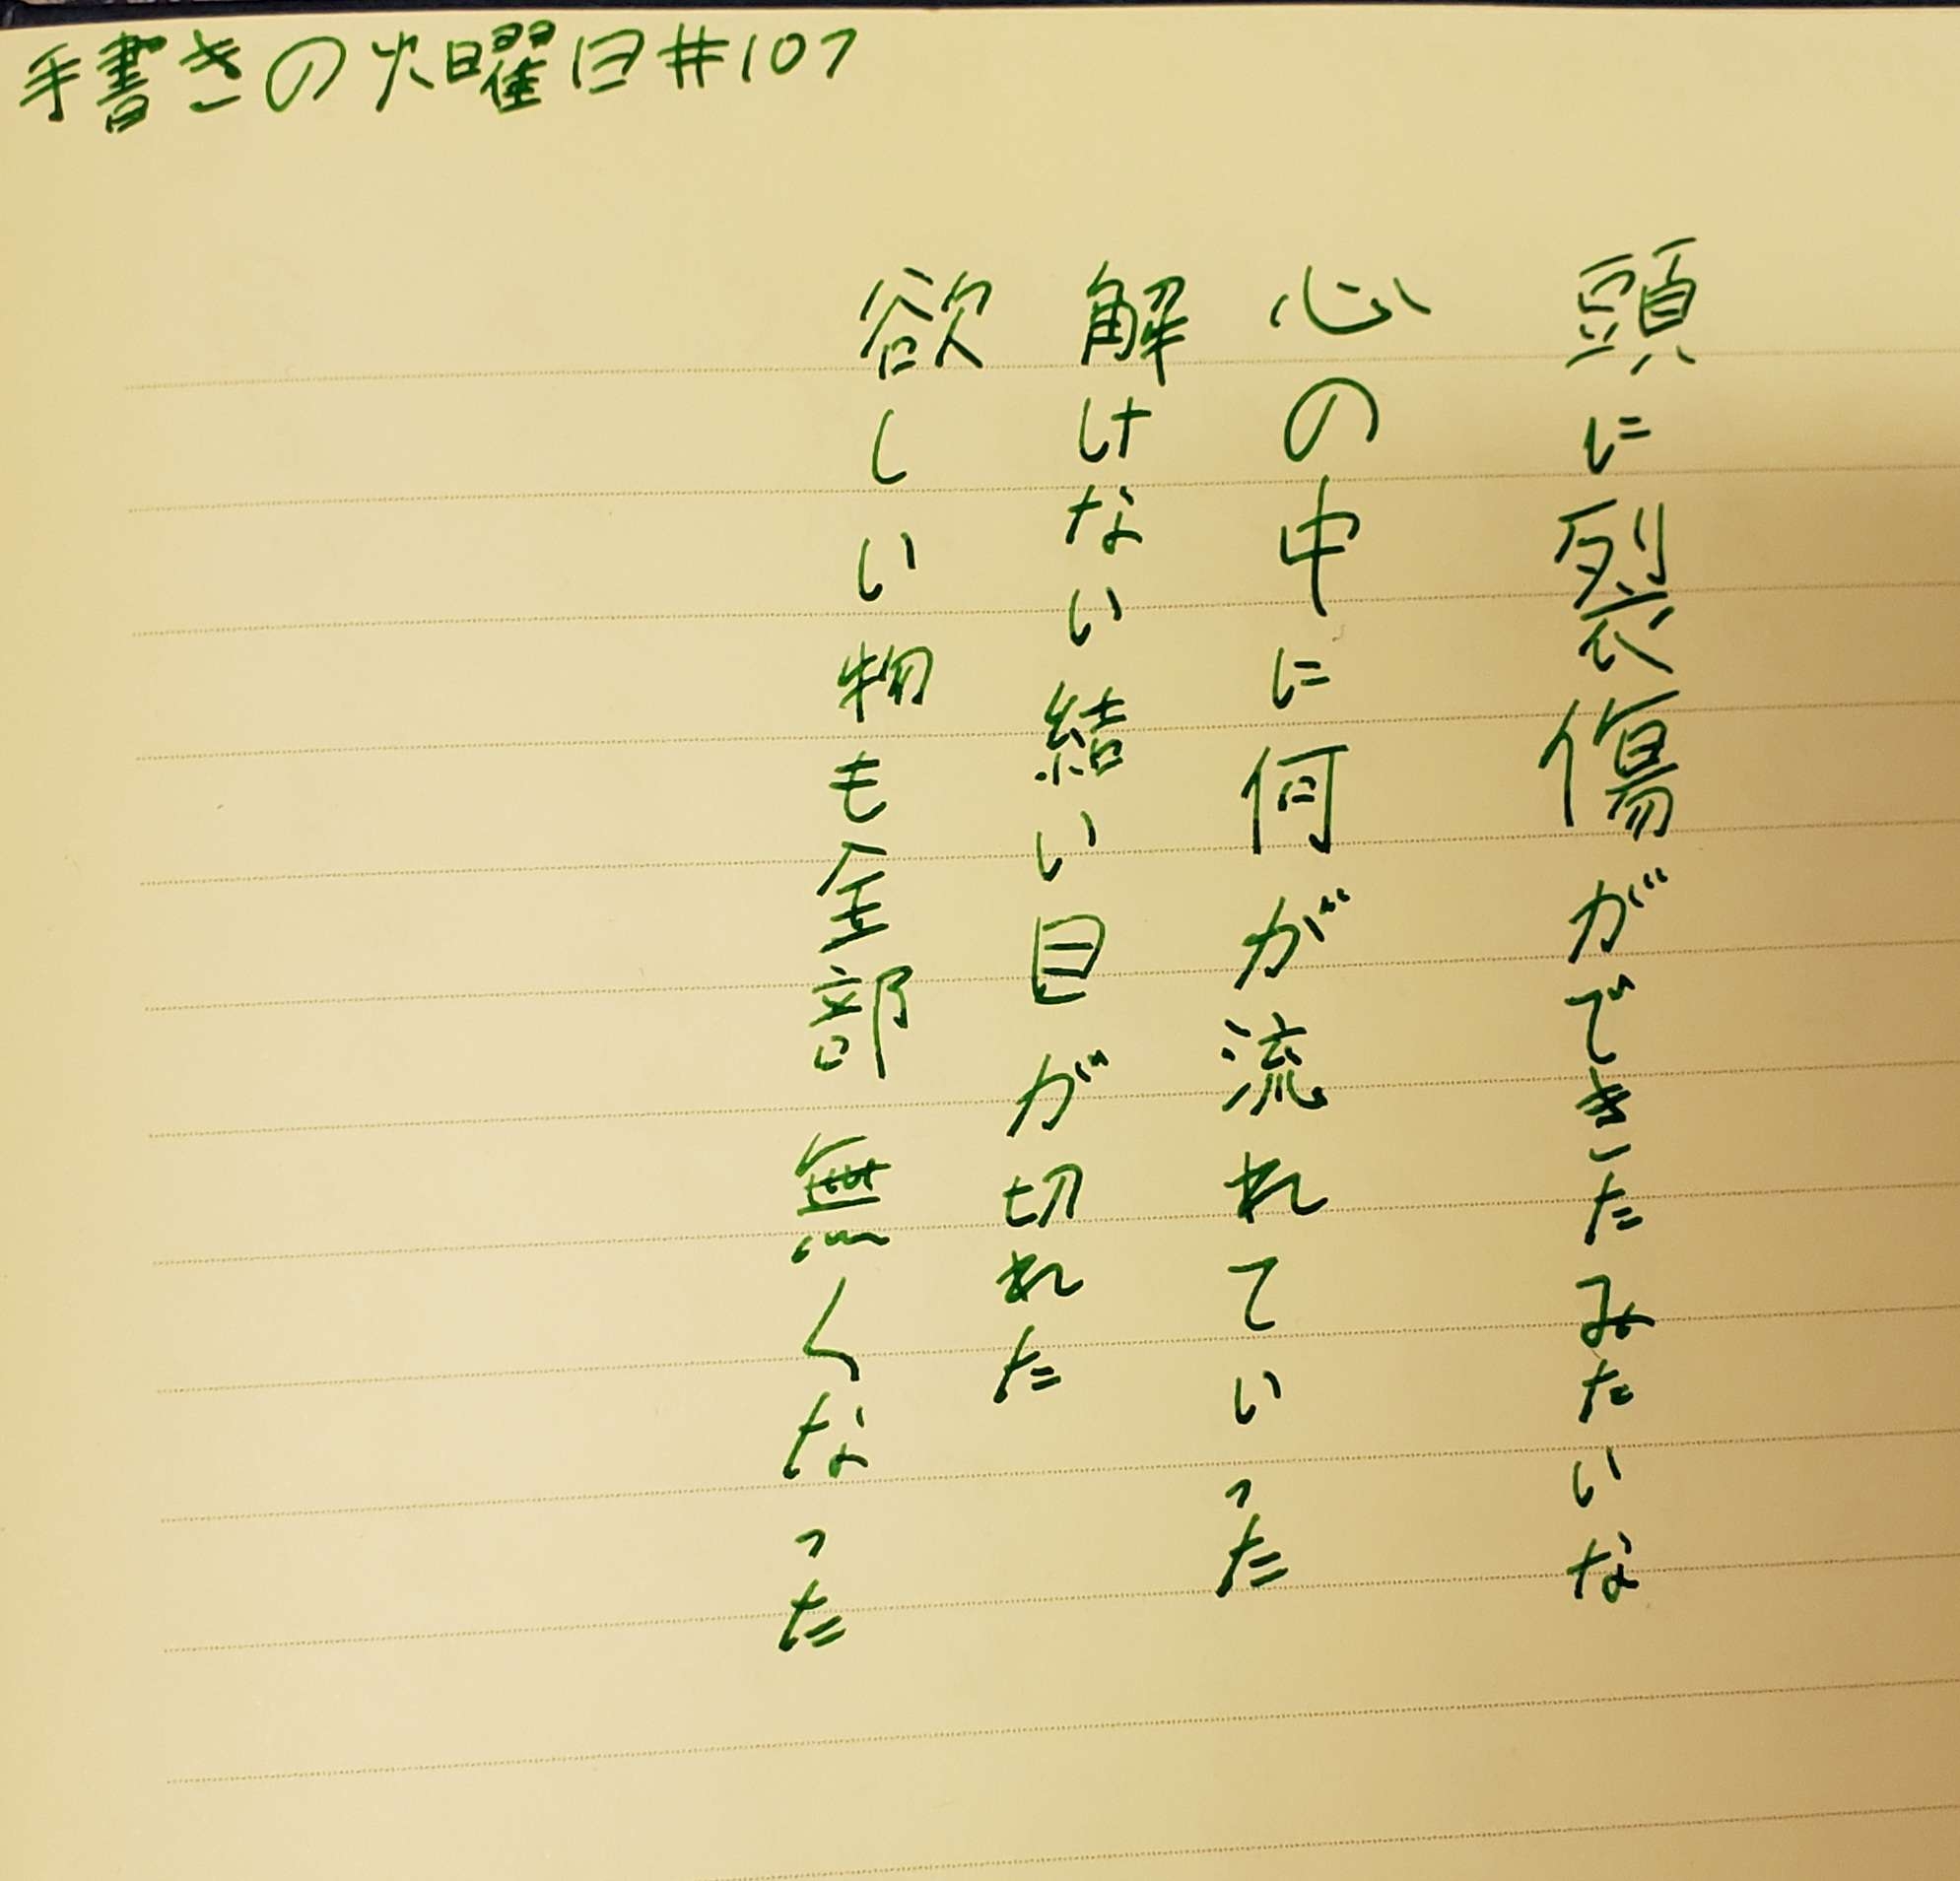 手書きの火曜日#107
頭に裂傷ができたみたいな
心の中に何が流れていった
解けない結い目が切れた
欲しい物も全部無くなった